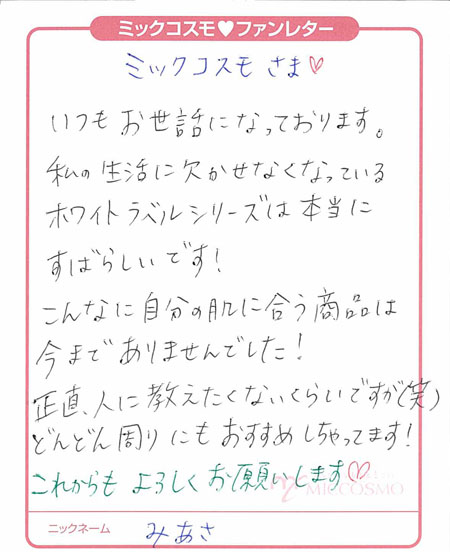 ミックコスモ♥ファンレター
ミックコスモさま♡
いつもお世話になっております。
私の生活に欠かせなくなっている
ホワイトラベルシリーズは本当に
すばらしいです!
こんなに自分の肌に合う商品は
今までありませんでした!
正直、人に教えたくないくらいですが(笑)
どんどん周りにもおすすめしちゃってます!
これからもよろしくお願いします♡
MICCOSMO
ニックネーム みあさ